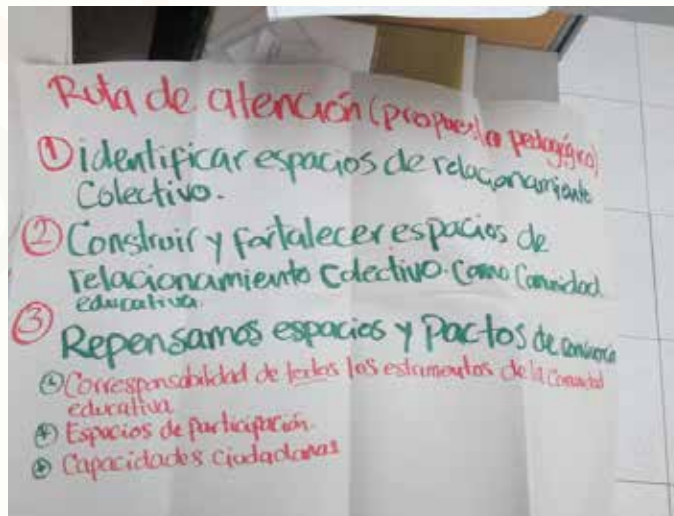 Ruta de atención (propuesta pedagógica)
① identificar espacios de relacionamiento
Colectivo.
② Construir y fortalecer espacios de
relacionamiento Colectivo. Como Comunidad
educativa.
③ Repensamos espacios y Pactos de convivencia
⊕ Corresponsabilidad de todos los estamentos de la Comunidad
educativa
⊕ Espacios de participación.
⊕ Capacidades ciudadanas